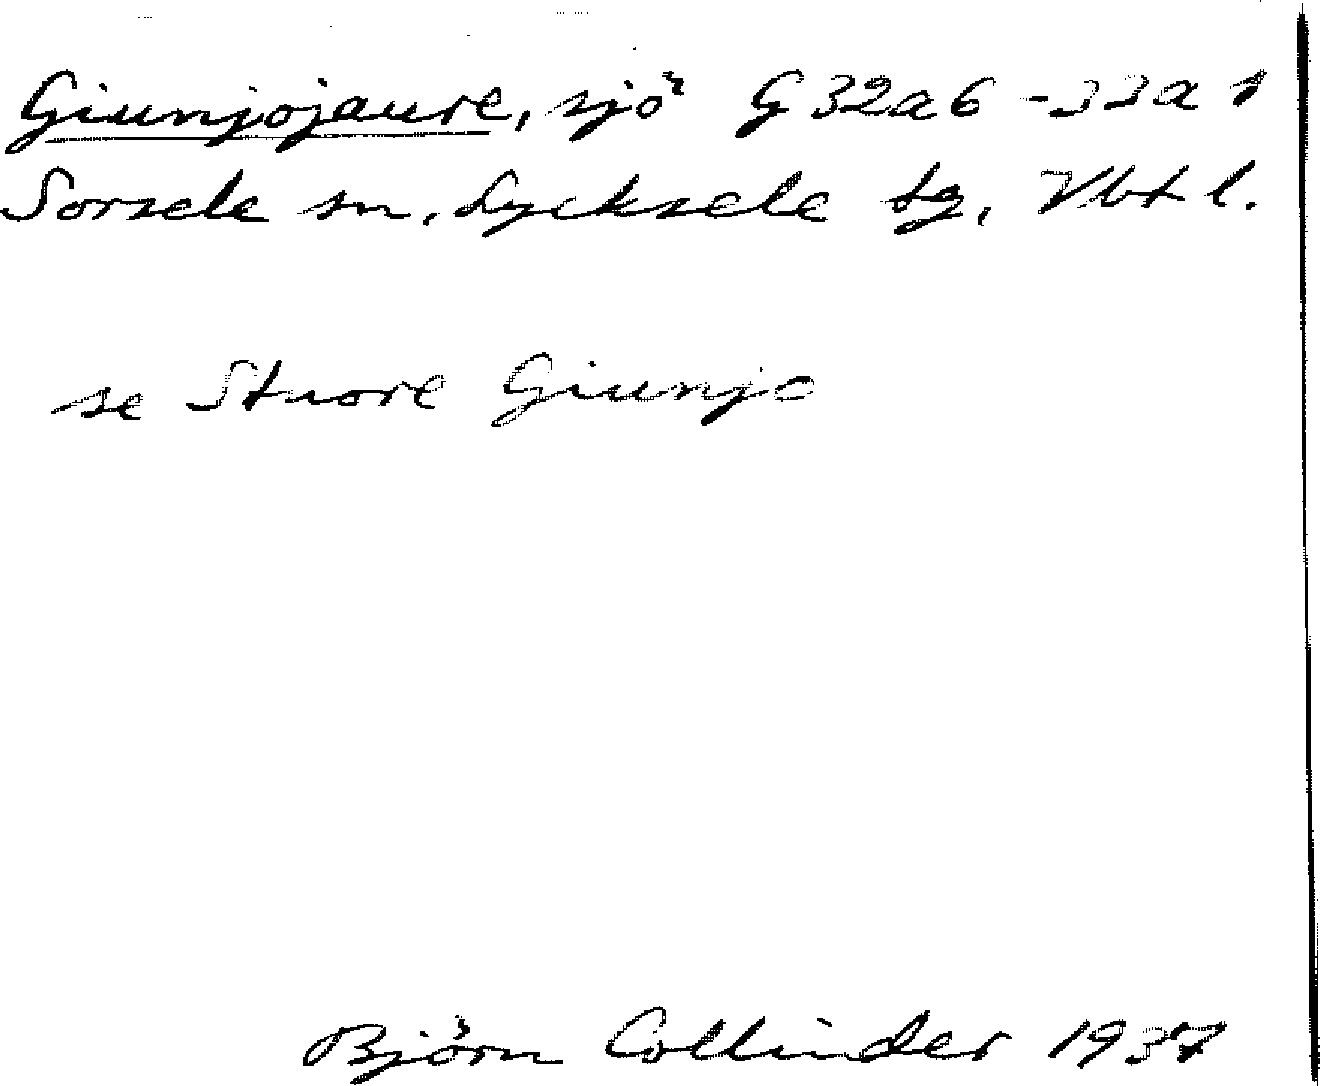 Giunjojaure, sjö G 32a6-33a1
Sorsele sn, Lycksele tg, Vbt l.
se Stuore Giunjo
Björn Collinder 1937